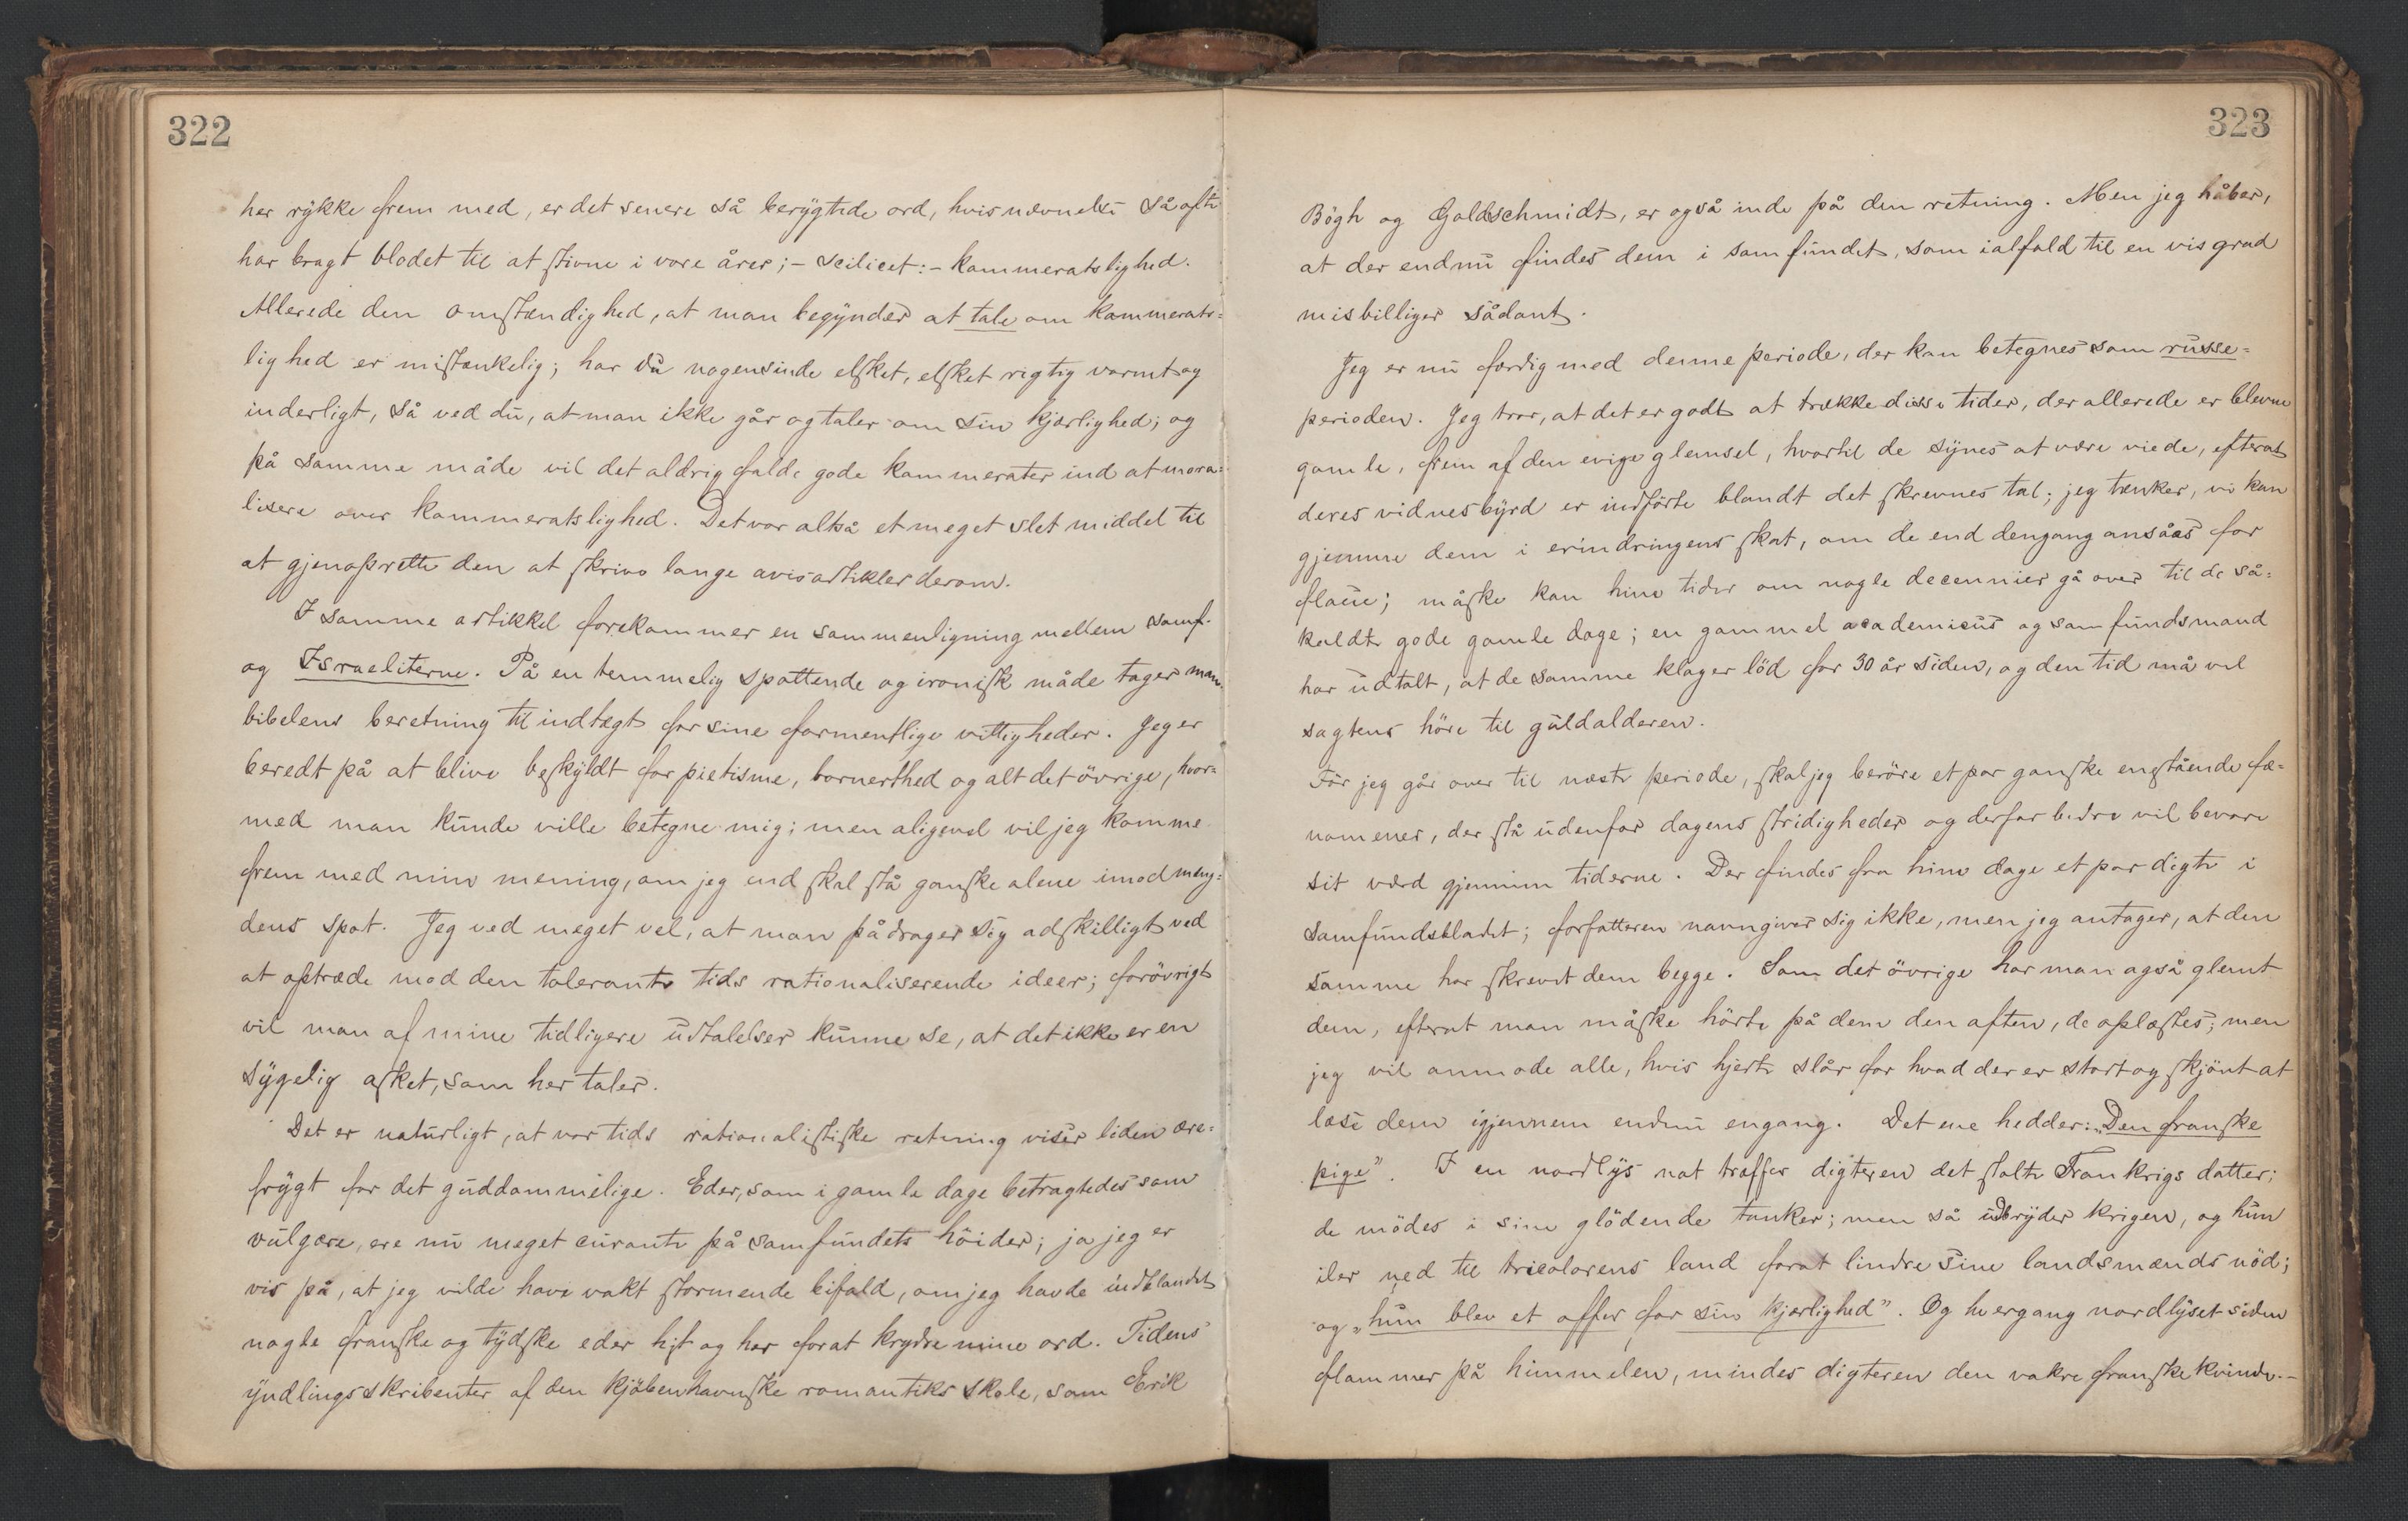 322
her rykke frem med, er det senere så berygtede ord, hvis nævnelse så ofte
har bragt blodet til at stivne i vore årer; - scilicet: - kammeratslighed.
Allerede den omstændighed, at man begynder at tale om kammerats=
lighed er mistænkelig; har du nogensinde elsket, elsket rigtig varmt og
inderligt, så ved du, at man ikke går og taler om sin kjærlighed; og
på samme måde vil det aldrig falde gode kammerater ind at mora=
lisere over kammeratslighed. Det var altså et meget slet middel til
at gjenoprette den at skrive lange avisartikler derom.
I samme artikkel forekommer en sammenligning mellem samf.
og Israeliterne. På en temmelig spottende og ironisk måde tager man
bibelens beretning til indtægt for sine formentlige vittigheder. Jeg er
beredt på at blive beskyldt for pietisme, bornerthed og alt det övrige, hvor=
med man kunde ville betegne mig; men aligevel vil jeg komme
frem med min mening, om jeg end skal stå ganske alene imod mæng=
dens spot. Jeg ved meget vel, at man pådrager sig adskilligt ved
at optræde mod den tolerante tids rationaliserende ideer; forövrigt
vil man af mine tidligere udtalelser kunne se, at det ikke er en
sygelig asket, som her taler.
Det er naturligt, at vor tids rationalistiske retning viser liden ære=
frygt for det guddommelige. Eder, som i gamle dage betragtedes som
vulgære, ere nu meget curante på samfundets höider; ja jeg er
vis på, at jeg vilde have vakt stormende bifald, om jeg havde indblandet
nogle franske og tydske eder hist og her forat krydre mine ord. Tidens
yndlingsskribenter af den kjöbenhavnske romantiks skole, som Erik
323
Bögh og Goldschmidt, er også inde på den retning. Men jeg håber,
at der endnu findes dem i samfundet, som ialfald til en vis grad
misbilliger sådant.
Jeg er nu færdig med denne periode, der kan betegnes som russe=
perioden. Jeg tror, at det er godt at trække disse tider, der allerede er blevne
gamle, frem af den evige glemsel, hvortil de synes at være viede, efterat
deres vidnesbyrd er indförte blandt det skrevnes tal; jeg tænker, vi kan
gjemme dem i erindringens skat, om de end dengang ansåes for
flaue; måske kan hine tider om nogle decennier gå over til de så=
kaldte gode gamle dage; en gammel academicus og samfundsmand
har udtalt, at de samme klager löd for 30 år siden, og den tid må vel
sagtens höre til guldalderen.
För jeg går over til næste periode, skal jeg beröre et par ganske enstående fæ=
nomener, der stå udenfor dagens stridigheder og derfor bedre vil bevare
sit værd gjennem tiderne. Der findes fra hine dage et par digte i
samfundsbladet; forfatteren navngiver sig ikke, men jeg antager, at den
samme har skrevet dem begge. Som det övrige har man også glemt
dem, efterat man måske hörte på dem den aften, de oplæstes; men
jeg vil anmode alle, hvis hjerte slår for hvad der er stort og skjönt at
læse dem igjennem endnu engang. Det ene hedder: „Den franske
pige". I en nordlys nat træffer digteren det stolte Frankrigs datter;
de mödes i sine glödende tanker; men så udbryder krigen, og hun
iler ned til tricolorens land forat lindre sine landsmænds nöd;
og „hun blev et offer for sin kjærlighed". Og hvergang nordlyset siden
flammer på himmelen, mindes digteren den vakre franske kvinde.-